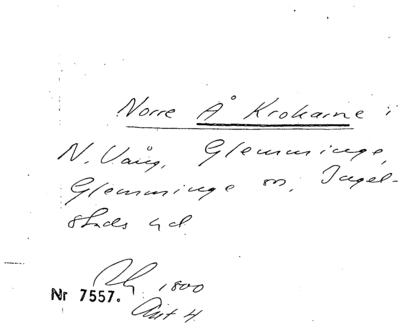 Norre Å Krokarne i
N. Vång, Glemminge,
Glemminge sn, Ingel-
stads hd
1800
Nr 7557.
Akt 4